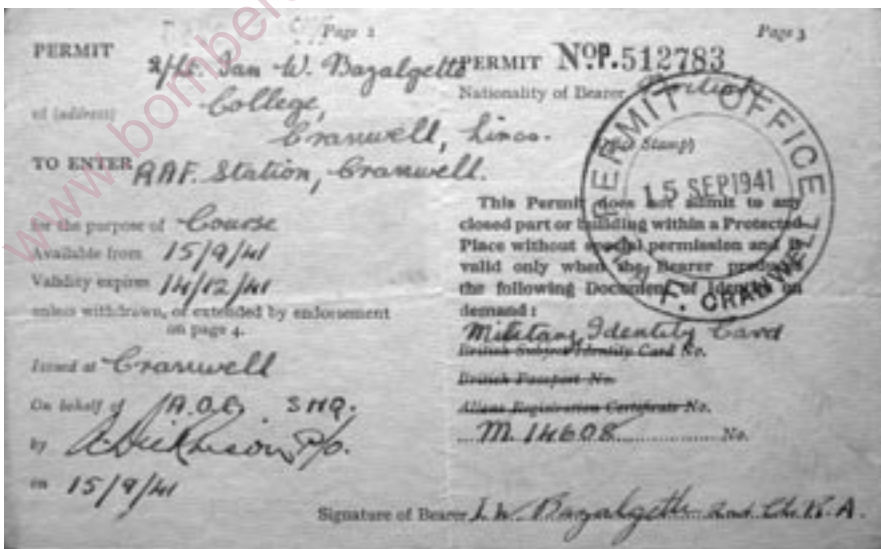 Page 2
PERMIT
2/Lt. Ian W. Bazalgette
of (address) College,
Cranwell, Lincs.
TO ENTER RAF. Station, Cranwell.
for the purpose of Course
Available from 15/9/41
Validity expires 14/12/41
unless withdrawn, or extended by endorsement
on page 4.
Issued at Cranwell
On behalf of A.O.C. SHQ.
by A. Dickinson P/O.
on 15/9/41
Page 3
PERMIT No P. 512783
Nationality of Bearer British
(Office Stamp)
PERMIT OFFICE
15 SEP 1941
F. CRANWELL
This Permit does not admit to any
closed part or building within a Protected
Place without special permission and is
valid only when the Bearer produces
the following Document of Identity on
demand:
Military Identity Card
British Subject Identity Card No.
British Passport No.
Aliens Registration Certificate No.
M. 14608 No.
Signature of Bearer I. W. Bazalgette 2nd Lt. R.A.
www.bomber